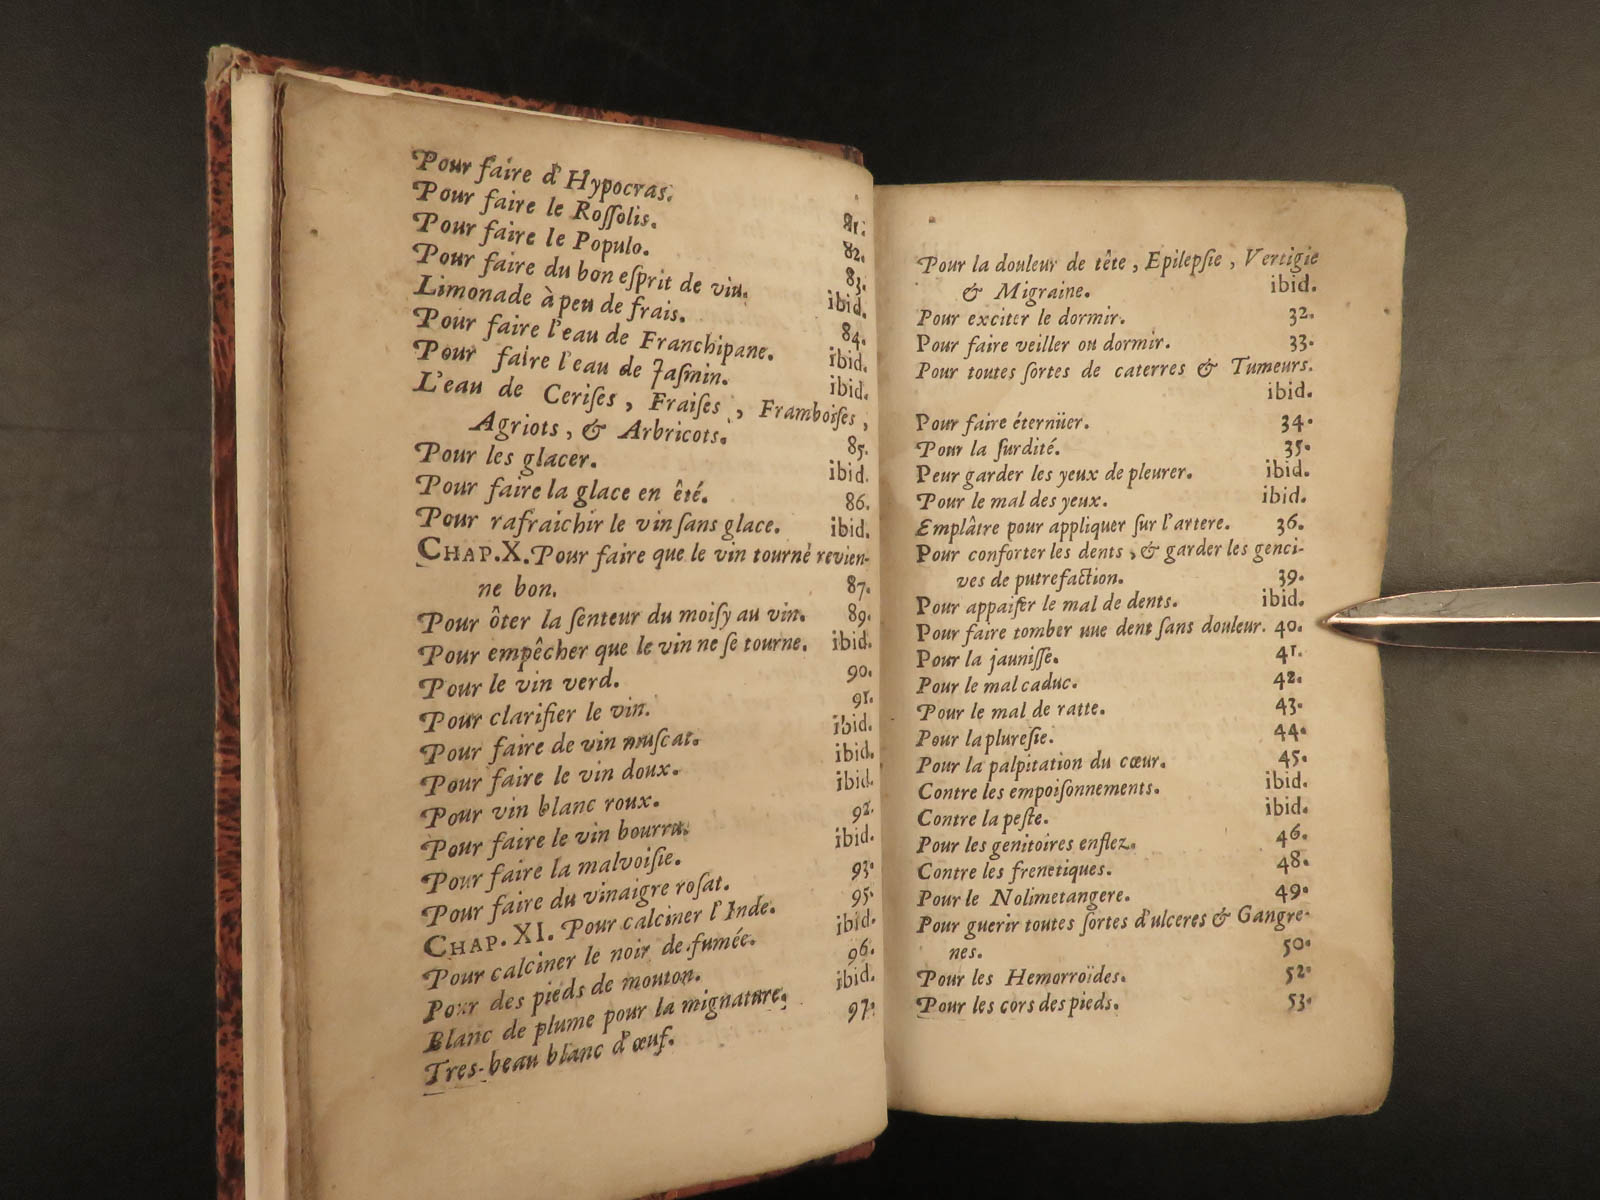 Pour faire d'Hypocras. 81.
Pour faire le Roſſolis. 82.
Pour faire le Populo. 83.
Pour faire du bon eſprit de vin. ibid.
Limonade à peu de frais. 84.
Pour faire l'eau de Franchipane. ibid.
Pour faire l'eau de Jaſmin. ibid.
L'eau de Ceriſes, Fraiſes, Framboiſes,
Agriots, & Arbricots. 85.
Pour les glacer. ibid.
Pour faire la glace en êté. 86.
Pour rafraichir le vin ſans glace. ibid.
CHAP. X. Pour faire que le vin tourné revien-
ne bon. 87.
Pour ôter la ſenteur du moiſy au vin. 89.
Pour empêcher que le vin ne ſe tourne. ibid.
Pour le vin verd. 90.
Pour clarifier le vin. 91.
Pour faire de vin muſcat. ibid.
Pour faire le vin doux. ibid.
Pour vin blanc roux. ibid.
Pour faire le vin bourru. 92.
Pour faire la malvoiſie. ibid.
Pour faire du vinaigre roſat. 93.
CHAP. XI. Pour calciner l'Inde. 95.
Pour calciner le noir de fumée. ibid.
Pour des pieds de mouton. 96.
Blanc de plume pour la mignature. ibid.
Tres-beau blanc d'œuf. 97.
Pour la douleur de tête, Epilepſie, Vertigie
& Migraine. ibid.
Pour exciter le dormir. 32.
Pour faire veiller ou dormir. 33.
Pour toutes ſortes de caterres & Tumeurs.
ibid.
Pour faire éternüer. 34.
Pour la ſurdité. 35.
Peur garder les yeux de pleurer. ibid.
Pour le mal des yeux. ibid.
Emplâtre pour appliquer ſur l'artere. 36.
Pour conforter les dents, & garder les genci-
ves de putrefaction. 39.
Pour appaiſer le mal de dents. ibid.
Pour faire tomber uue dent ſans douleur. 40.
Pour la jauniſſe. 41.
Pour le mal caduc. 42.
Pour le mal de ratte. 43.
Pour la plureſie. 44.
Pour la palpitation du cœur. 45.
Contre les empoiſonnements. ibid.
Contre la peſte. ibid.
Pour les genitoires enflez. 46.
Contre les frenetiques. 48.
Pour le Nolimetangere. 49.
Pour guerir toutes ſortes d'ulceres & Gangre-
nes. 50.
Pour les Hemorroïdes. 52.
Pour les cors des pieds. 53.